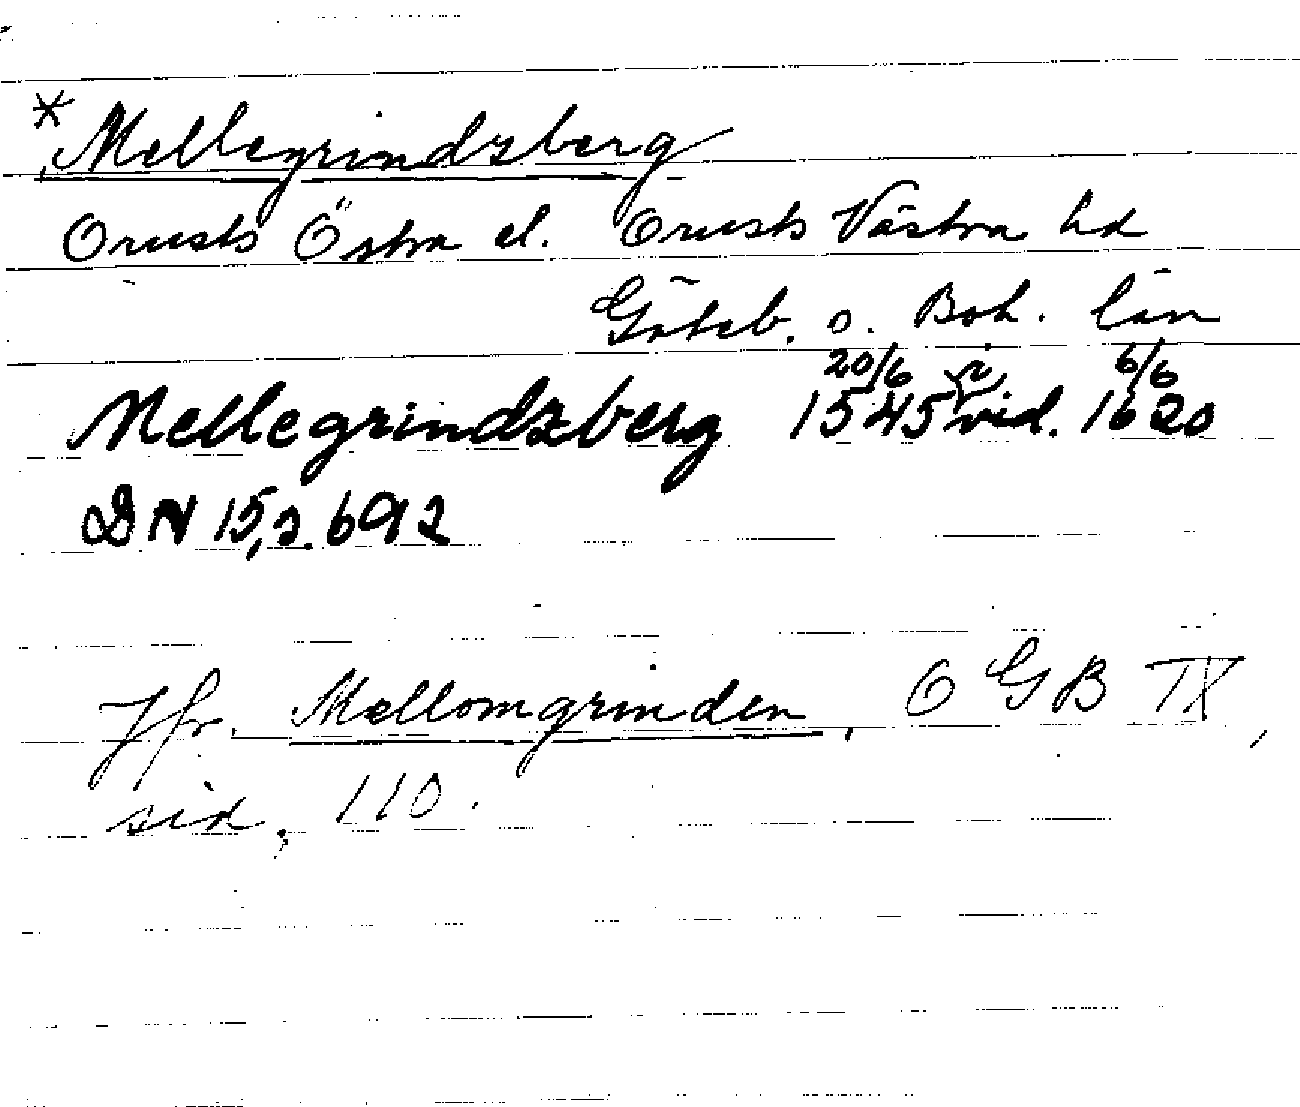 * Mellegrindzberg
Orusts Östra el. Orusts Västra hd
Göteb. o. Boh. län
Mellegrindzberg 20/6 1545 i vid. 6/6 1620
DN 15, s. 692
Jfr. Mellomgrinden, OGB IX,
sid. 110.